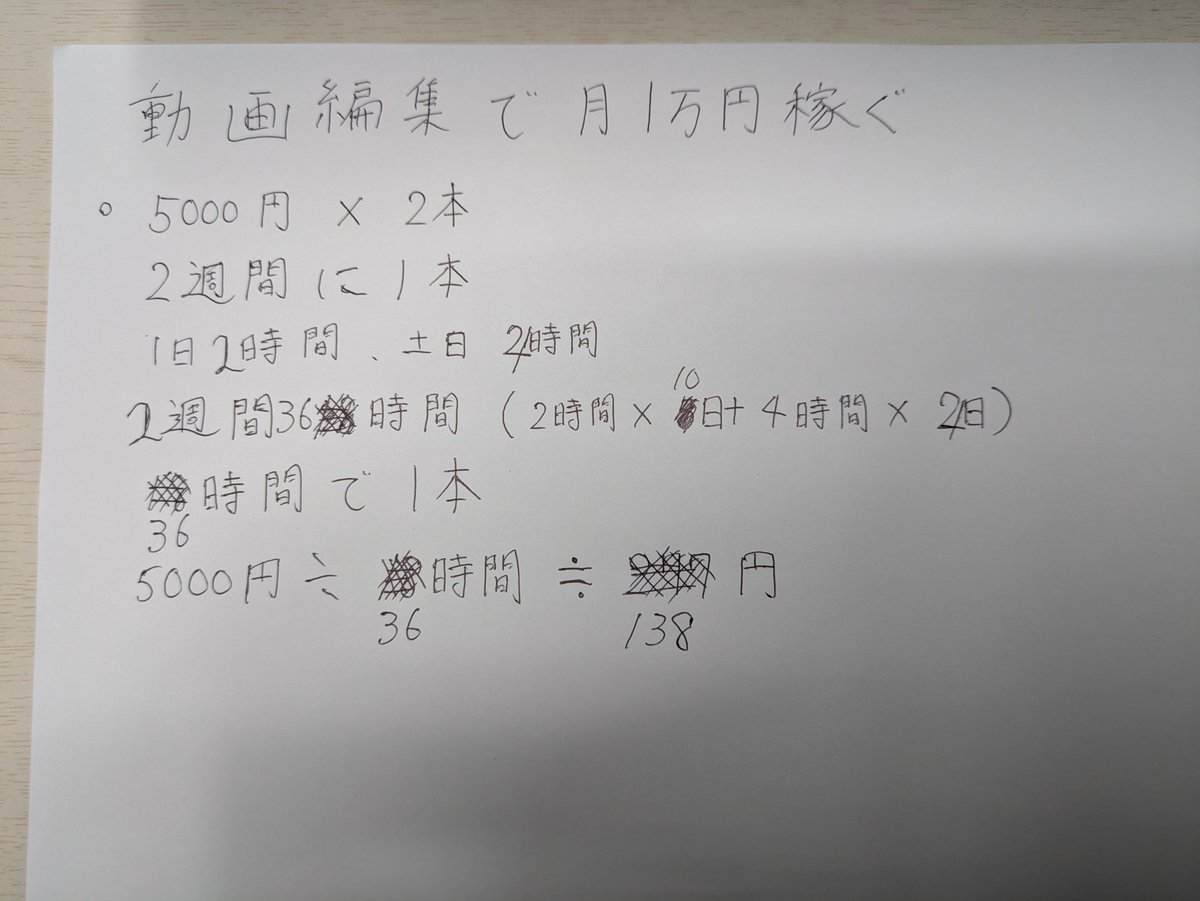 動画編集で月1万円稼ぐ
。5000円 × 2本
2週間に1本
1日2時間、土日4時間
2週間36時間(2時間×10日+4時間×4日)
36時間で1本
5000円÷36時間≒138円